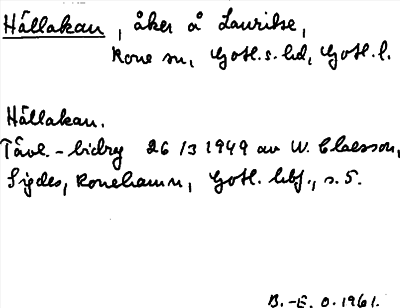 Hällakan, åker å Lauritse,
Rone sn, Gotl. s. hd, Gotl. l.
Hällakan.
Tävl.-bidrag 26/3 1949 av W. Claesson,
Sigdes, Ronehamn, Gotl. hbf., s. 5.
B.-E. O. 1961.